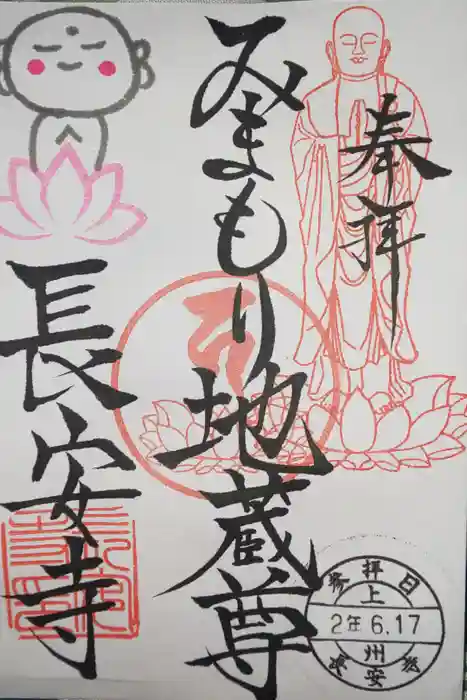 奉拝
みまもり地蔵尊
長安寺
参拝日
上
2年 6.17
州
長安寺